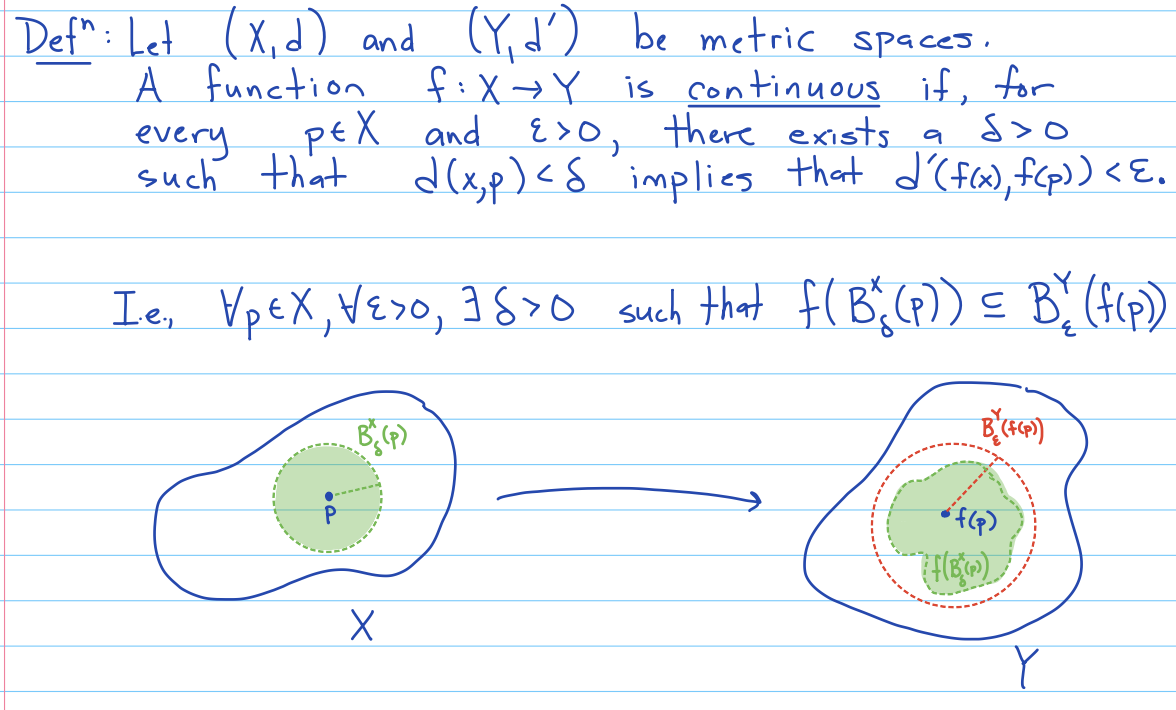 Defⁿ: Let (X,d) and (Y,d′) be metric spaces.
A function f:X→Y is continuous if, for
every p∈X and ε>0, there exists a δ>0
such that d(x,p)<δ implies that d′(f(x),f(p))<ε.
I.e., ∀p∈X, ∀ε>0, ∃δ>0 such that f(B^X_δ(p)) ⊆ B^Y_ε(f(p))
B^X_δ(p)
p
X
B^Y_ε(f(p))
f(p)
f(B^X_δ(p))
Y